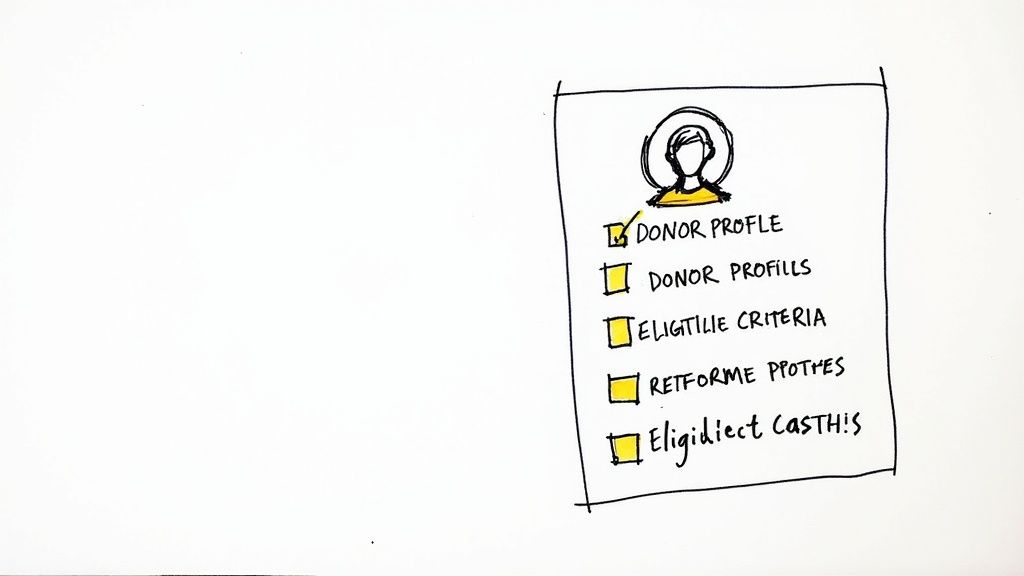 DONOR PROFLE
DONOR PROFILLS
ELIGTILIE CRITERIA
RETFORME PPOTHES
Eligidiect CasTH!s